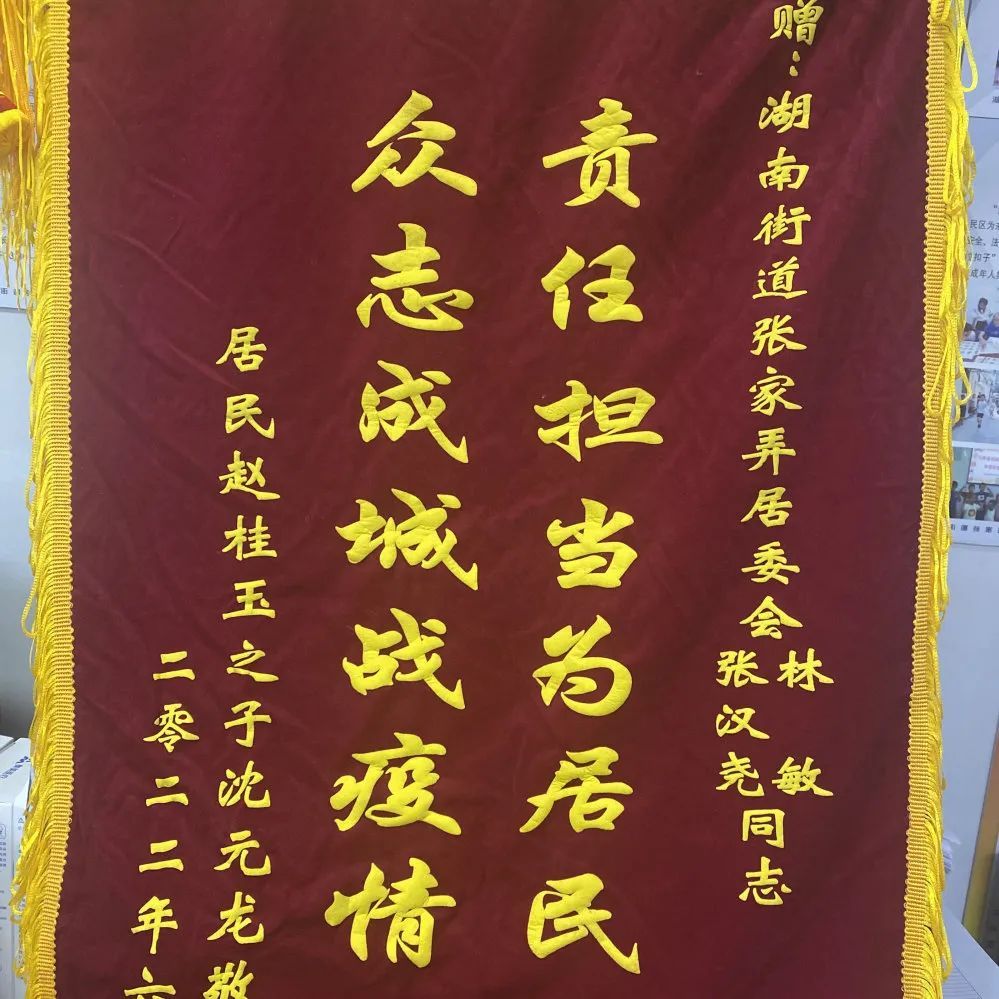 赠：湖南街道张家弄居委会林敏
张汉尧同志
责任担当为居民
众志成城战疫情
居民赵桂玉之子沈元龙敬
二零二二年六